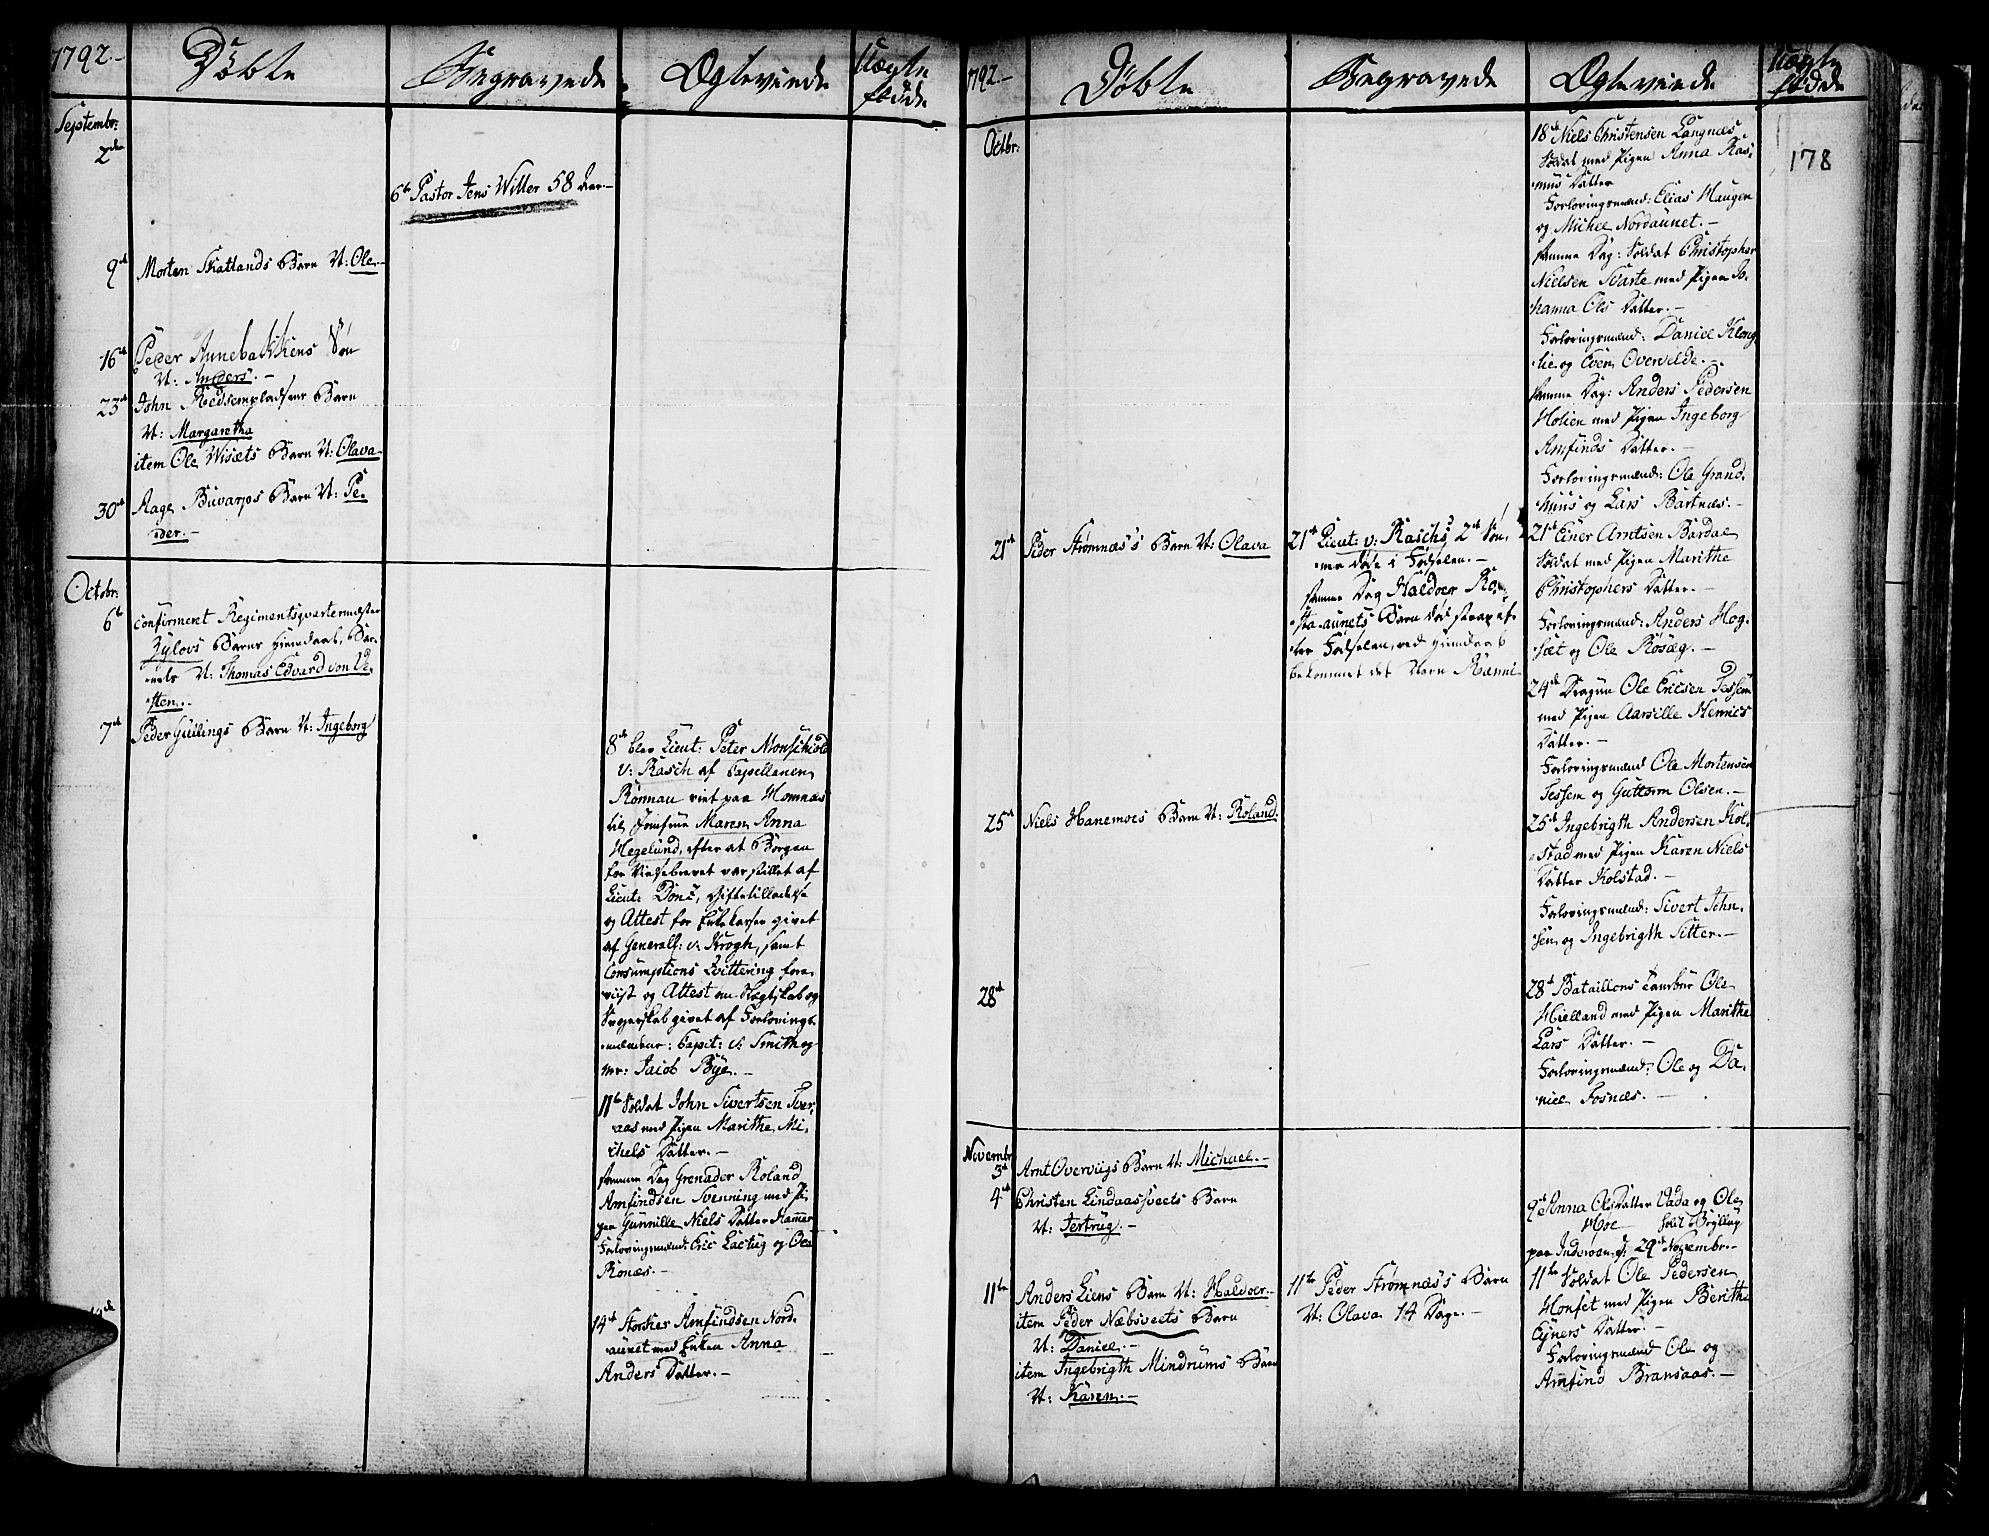 1792.-
Döbte
Begravede
Ægteviede
Uægte
födde
Septembr:
2den
6te Pastor Jens Willer 58 Aar.-
9de Morten Skatlands Barn N: Ole.-
16de Peder Annebakkens Sön
N: Anders.-
23de John Rædsempladsens Barn
N: Margaretha
item Ole Wisets Barn N: Olava
30de Aage Buvarpos Barn N: Pe-
der.-
Octobr:
6te confirment Regimentsqvartermester
Zylovs Barns Hiemdaab,
N: Thomas Edvard von Ve-
sten.-
7de Peder Gülings Barn N: Ingeborg
8de blev Lieut: Peter Monschiold
v: Rasch af Capellanen
Rönnau viet paa Homnæs
til Jomfrue Maren Anna
Hegelund, efter at Borgen
for Vielsebrevet var stillet af
Lieut: Dons, Giftetilladelse
og Attest for Enkekassen givet
af Generall: v: Krogh, samt
Consumptions Qvittering fore-
viist og Attest om Slegtskab og
Svogerskab givet af Forlovings-
mændene: Capit: v: Smith og
mr: Jacob Bye.-
11te Soldat John Sivertsen Sver-
aas med Pigen Marithe Mi-
chels Datter.-
samme Dag Grenader Roland
Amfindsen Svenning med Pi-
gen Gunnille Niels Datter Hammer
Forlovingsmænd: Eric Lactüg og Ole
Ronæs.-
14de Storker Amfindsen Nord-
aunet med Enken Anna
Anders Datter.-
1792.-
Döbte
Begravede
Ægteviede
Uægte
födde
178
Octbr:
18de Niels Christensen Langnæs
Soldat med Pigen Anna Ras-
mus Datter
Forlovingsmænd: Elias Haugen
og Michel Nordaunet.-
samme Dag: Soldat Christopher
Nielsen Svarte med Pigen Jo-
hanna Ols Datter.-
Forlovingsmænd: Daniel Kleng-
lie og Even Overvelde.-
samme Dag: Anders Pedersen
Holien med Pigen Ingeborg
Amfinds Datter.-
Forlovingsmænd: Ole Grand-
huus og Lars Bartnæs.-
21de Peder Strömnæs's Barn N: Olava
21de Lieut: v: Rasch's 2de Sön-
ner döde i Födselen.-
samme Dag Haldoer Ro-
sta-aunets Barn död strax ef-
ter Födselen, ved Hiemdaab
bekommet det Navn Rønni
21de Einer Arntsen Bardal
Soldat med Pigen Marithe
Christophers Datter.-
Forlovingsmænd: Anders Hog-
sæt og Ole Rösæg.-
24de Dragun Ole Ericsen Tessem
med Pigen Aarsille Henrics
Datter.-
Forlovingsmænd Ole Mortensen
Tessem og Guttorm Olsen.-
25de Niels Hanemoes Barn N: Roland.
25de Ingebrigth Andersen Kol-
stad med Pigen Karen Niels
Datter Kolstad.-
Forlovingsmænd: Sivert John-
sen og Ingebrigth Sitter.-
28de
28de Bataillons Tambur Ole
Hielland med Pigen Marithe
Lars Datter.-
Forlovingsmænd: Ole og Da-
niel Fosnæs.-
Novembr
3de Arnt Overviigs Barn N: Michael.-
4de Christen Lindaassveets Barn
N: Jertrug.-
9de Anna Ols Datter Vada og Ole
Moe
paa Inderöen, d: 29de Novembr.-
11te Anders Liens Barn N: Haldoer.-
item Peder Næbsveets Barn
N: Daniel.-
item Ingebrigth Mindrums Barn
N: Karen.-
11te Peder Strömnæs's Barn
N: Olava 14 Dage.-
11te Soldat Ole Pedersen
Honset med Pigen Berithe
Ejners Datter.-
Forlovingsmænd Ole og
Amfind Bransaas.-